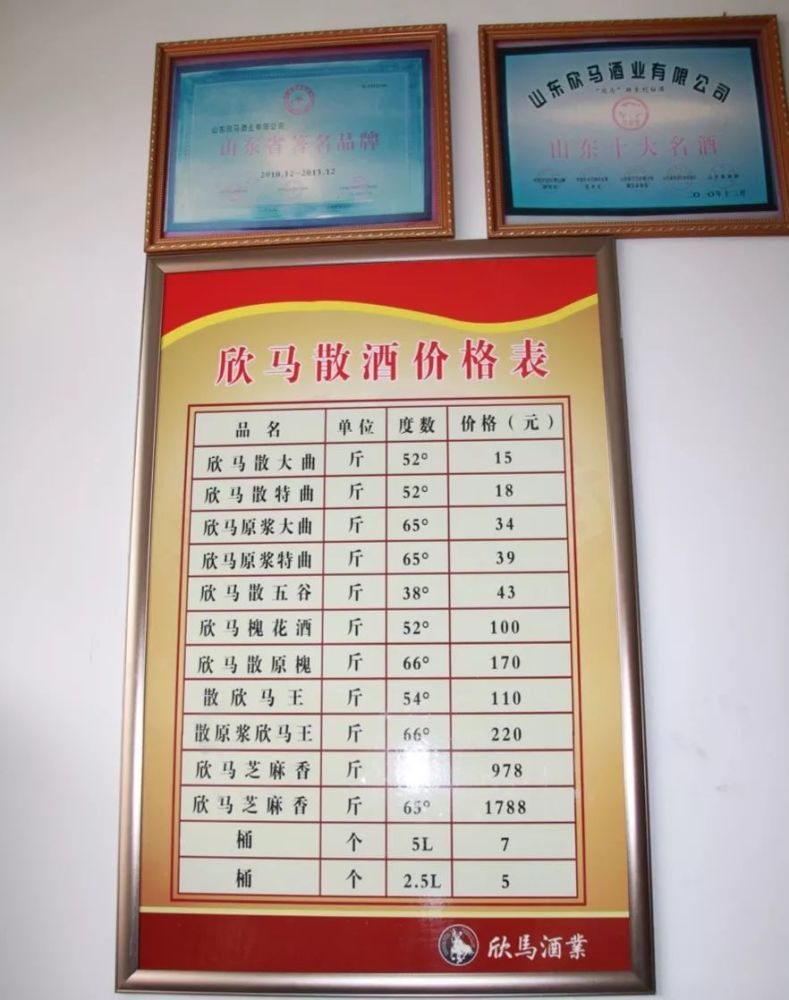 山东欣马酒业有限公司
山东省著名品牌
2010.12—2013.12
山东欣马酒业有限公司
山东十大名酒
二〇一〇年十二月
欣马散酒价格表
品名 单位 度数 价格（元）
欣马散大曲 斤 52° 15
欣马散特曲 斤 52° 18
欣马原浆大曲 斤 65° 34
欣马原浆特曲 斤 65° 39
欣马散五谷 斤 38° 43
欣马槐花酒 斤 52° 100
欣马散原槐 斤 66° 170
散欣马王 斤 54° 110
散原浆欣马王 斤 66° 220
欣马芝麻香 斤 978
欣马芝麻香 斤 65° 1788
桶 个 5L 7
桶 个 2.5L 5
欣馬酒業